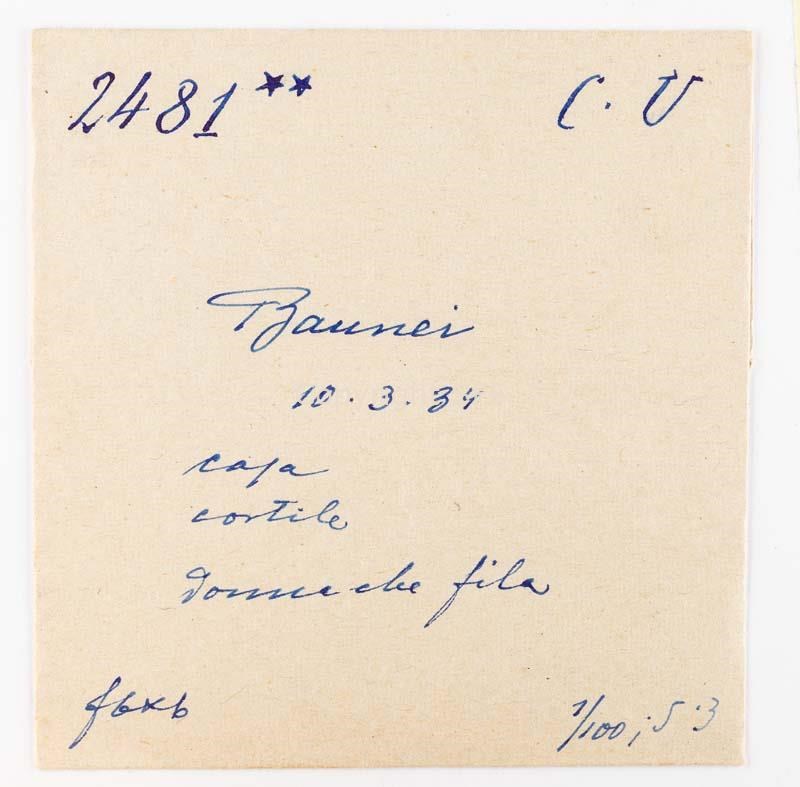 2481 ** C. V
Baunei
10.3.34
casa
cortile
donna che fila
f6x6
1/100; 5.3